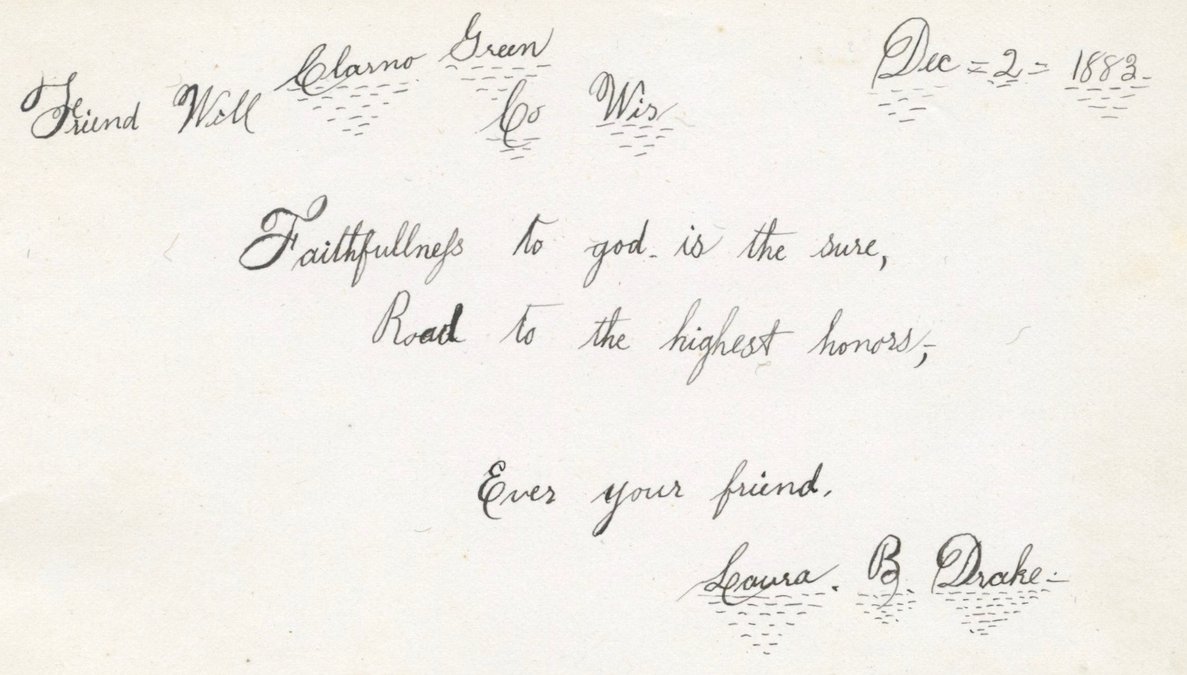 Clarno Green Dec = 2 = 1883-
Friend Will Co Wis
Faithfullneſs to god - is the sure,
Road to the highest honors,-
Ever your friend.
Laura. B. Drake-